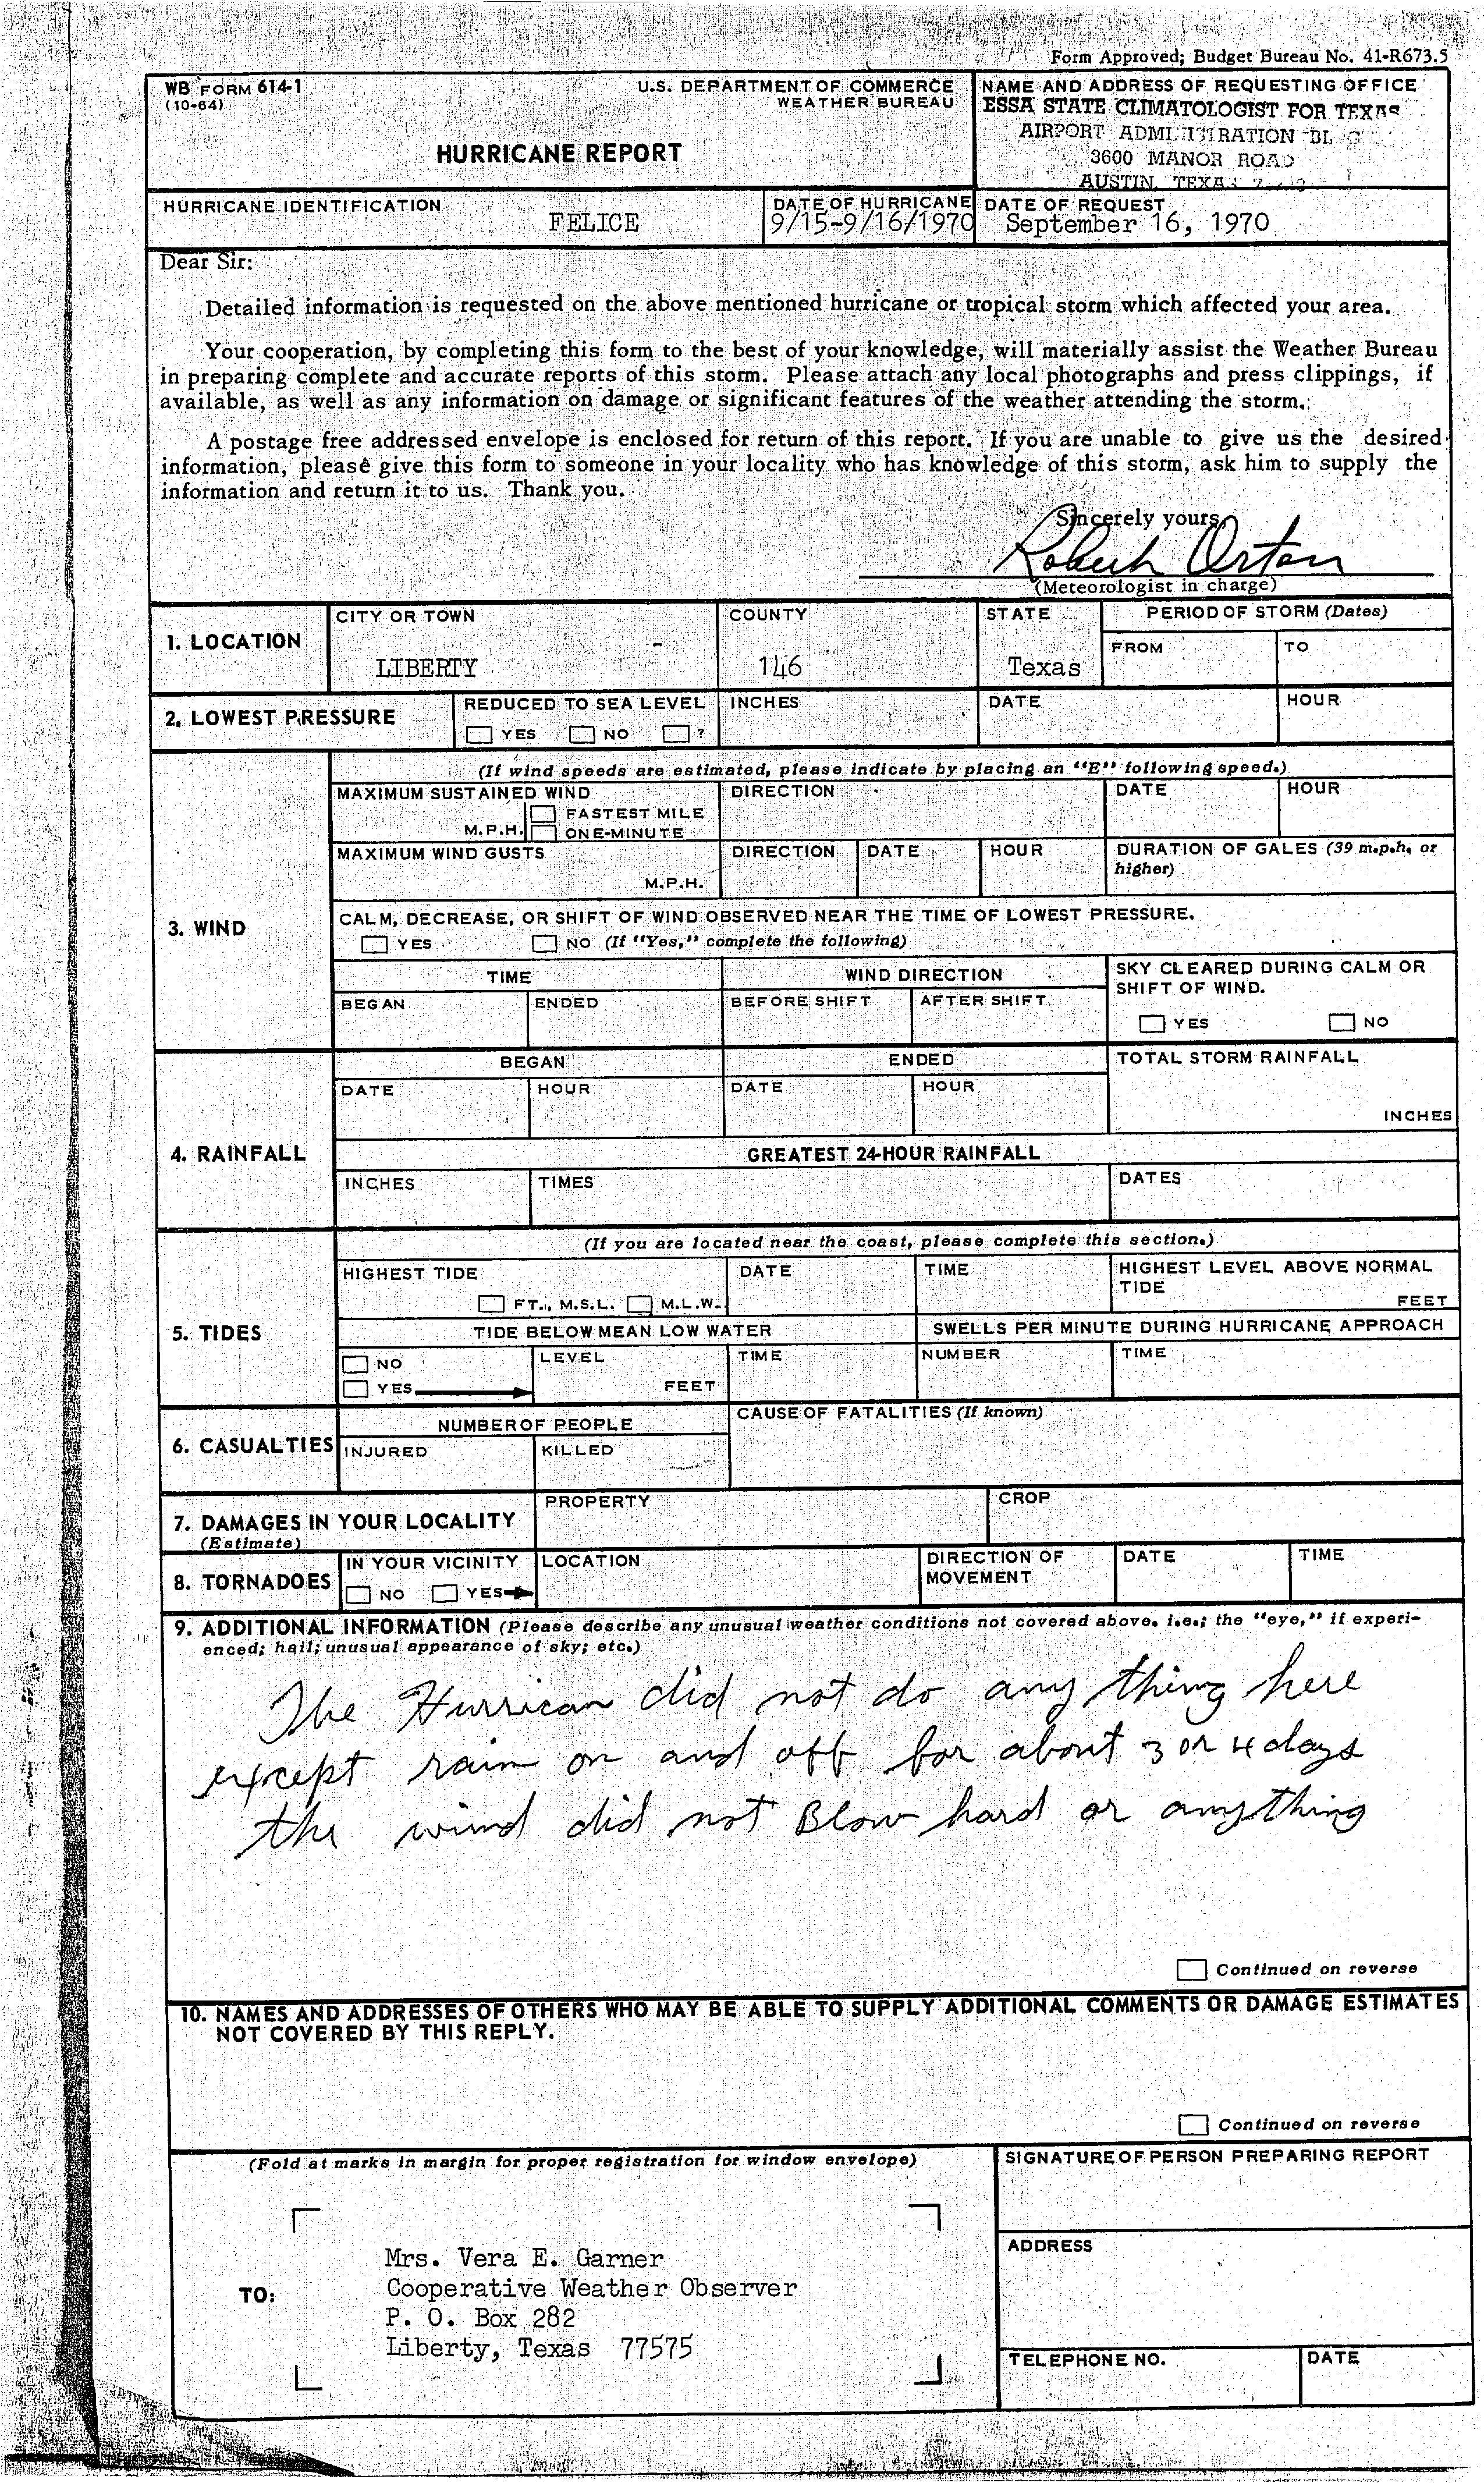 Form Approved; Budget Bureau No. 41-R673.5
WB FORM 614-1
(10-64)
U.S. DEPARTMENT OF COMMERCE
WEATHER BUREAU
HURRICANE REPORT
NAME AND ADDRESS OF REQUESTING OFFICE
ESSA STATE CLIMATOLOGIST FOR TEXAS
AIRPORT ADMINISTRATION
3600 MANOR ROAD
AUSTIN, TEXAS
HURRICANE IDENTIFICATION
FELICE
DATE OF HURRICANE
9/15-9/16/1970
DATE OF REQUEST
September 16, 1970
Dear Sir:
Detailed information is requested on the above mentioned hurricane or tropical storm which affected your area.
Your cooperation, by completing this form to the best of your knowledge, will materially assist the Weather Bureau
in preparing complete and accurate reports of this storm. Please attach any local photographs and press clippings, if
available, as well as any information on damage or significant features of the weather attending the storm.
A postage free addressed envelope is enclosed for return of this report. If you are unable to give us the desired
information, please give this form to someone in your locality who has knowledge of this storm, ask him to supply the
information and return it to us. Thank you.
Sincerely yours,
Robert Orton
(Meteorologist in charge)
1. LOCATION
CITY OR TOWN
LIBERTY
COUNTY
146
STATE
Texas
PERIOD OF STORM (Dates)
FROM
TO
2. LOWEST PRESSURE
REDUCED TO SEA LEVEL
YES NO ?
INCHES
DATE
HOUR
3. WIND
(If wind speeds are estimated, please indicate by placing an "E" following speed.)
MAXIMUM SUSTAINED WIND
M.P.H.
FASTEST MILE
ONE-MINUTE
DIRECTION
DATE
HOUR
MAXIMUM WIND GUSTS
M.P.H.
DIRECTION
DATE
HOUR
DURATION OF GALES (39 m.p.h. or
higher)
CALM, DECREASE, OR SHIFT OF WIND OBSERVED NEAR THE TIME OF LOWEST PRESSURE.
YES NO (If "Yes," complete the following)
TIME
WIND DIRECTION
BEGAN
ENDED
BEFORE SHIFT
AFTER SHIFT
SKY CLEARED DURING CALM OR
SHIFT OF WIND.
YES NO
4. RAINFALL
BEGAN
ENDED
DATE
HOUR
DATE
HOUR
TOTAL STORM RAINFALL
INCHES
GREATEST 24-HOUR RAINFALL
INCHES
TIMES
DATES
5. TIDES
(If you are located near the coast, please complete this section.)
HIGHEST TIDE
FT., M.S.L. M.L.W.
DATE
TIME
HIGHEST LEVEL ABOVE NORMAL
TIDE
FEET
TIDE BELOW MEAN LOW WATER
SWELLS PER MINUTE DURING HURRICANE APPROACH
NO
YES
LEVEL
FEET
TIME
NUMBER
TIME
6. CASUALTIES
NUMBER OF PEOPLE
INJURED
KILLED
CAUSE OF FATALITIES (If known)
7. DAMAGES IN YOUR LOCALITY
(Estimate)
PROPERTY
CROP
8. TORNADOES
IN YOUR VICINITY
NO YES
LOCATION
DIRECTION OF
MOVEMENT
DATE
TIME
9. ADDITIONAL INFORMATION (Please describe any unusual weather conditions not covered above. i.e.; the "eye," if experi-
enced; hail; unusual appearance of sky; etc.)
The Hurrican did not do any thing here
except rain on and off for about 3 or 4 days
the wind did not Blow hard or anything
Continued on reverse
10. NAMES AND ADDRESSES OF OTHERS WHO MAY BE ABLE TO SUPPLY ADDITIONAL COMMENTS OR DAMAGE ESTIMATES
NOT COVERED BY THIS REPLY.
Continued on reverse
(Fold at marks in margin for proper registration for window envelope)
TO:
Mrs. Vera E. Garner
Cooperative Weather Observer
P. O. Box 282
Liberty, Texas 77575
SIGNATURE OF PERSON PREPARING REPORT
ADDRESS
TELEPHONE NO.
DATE